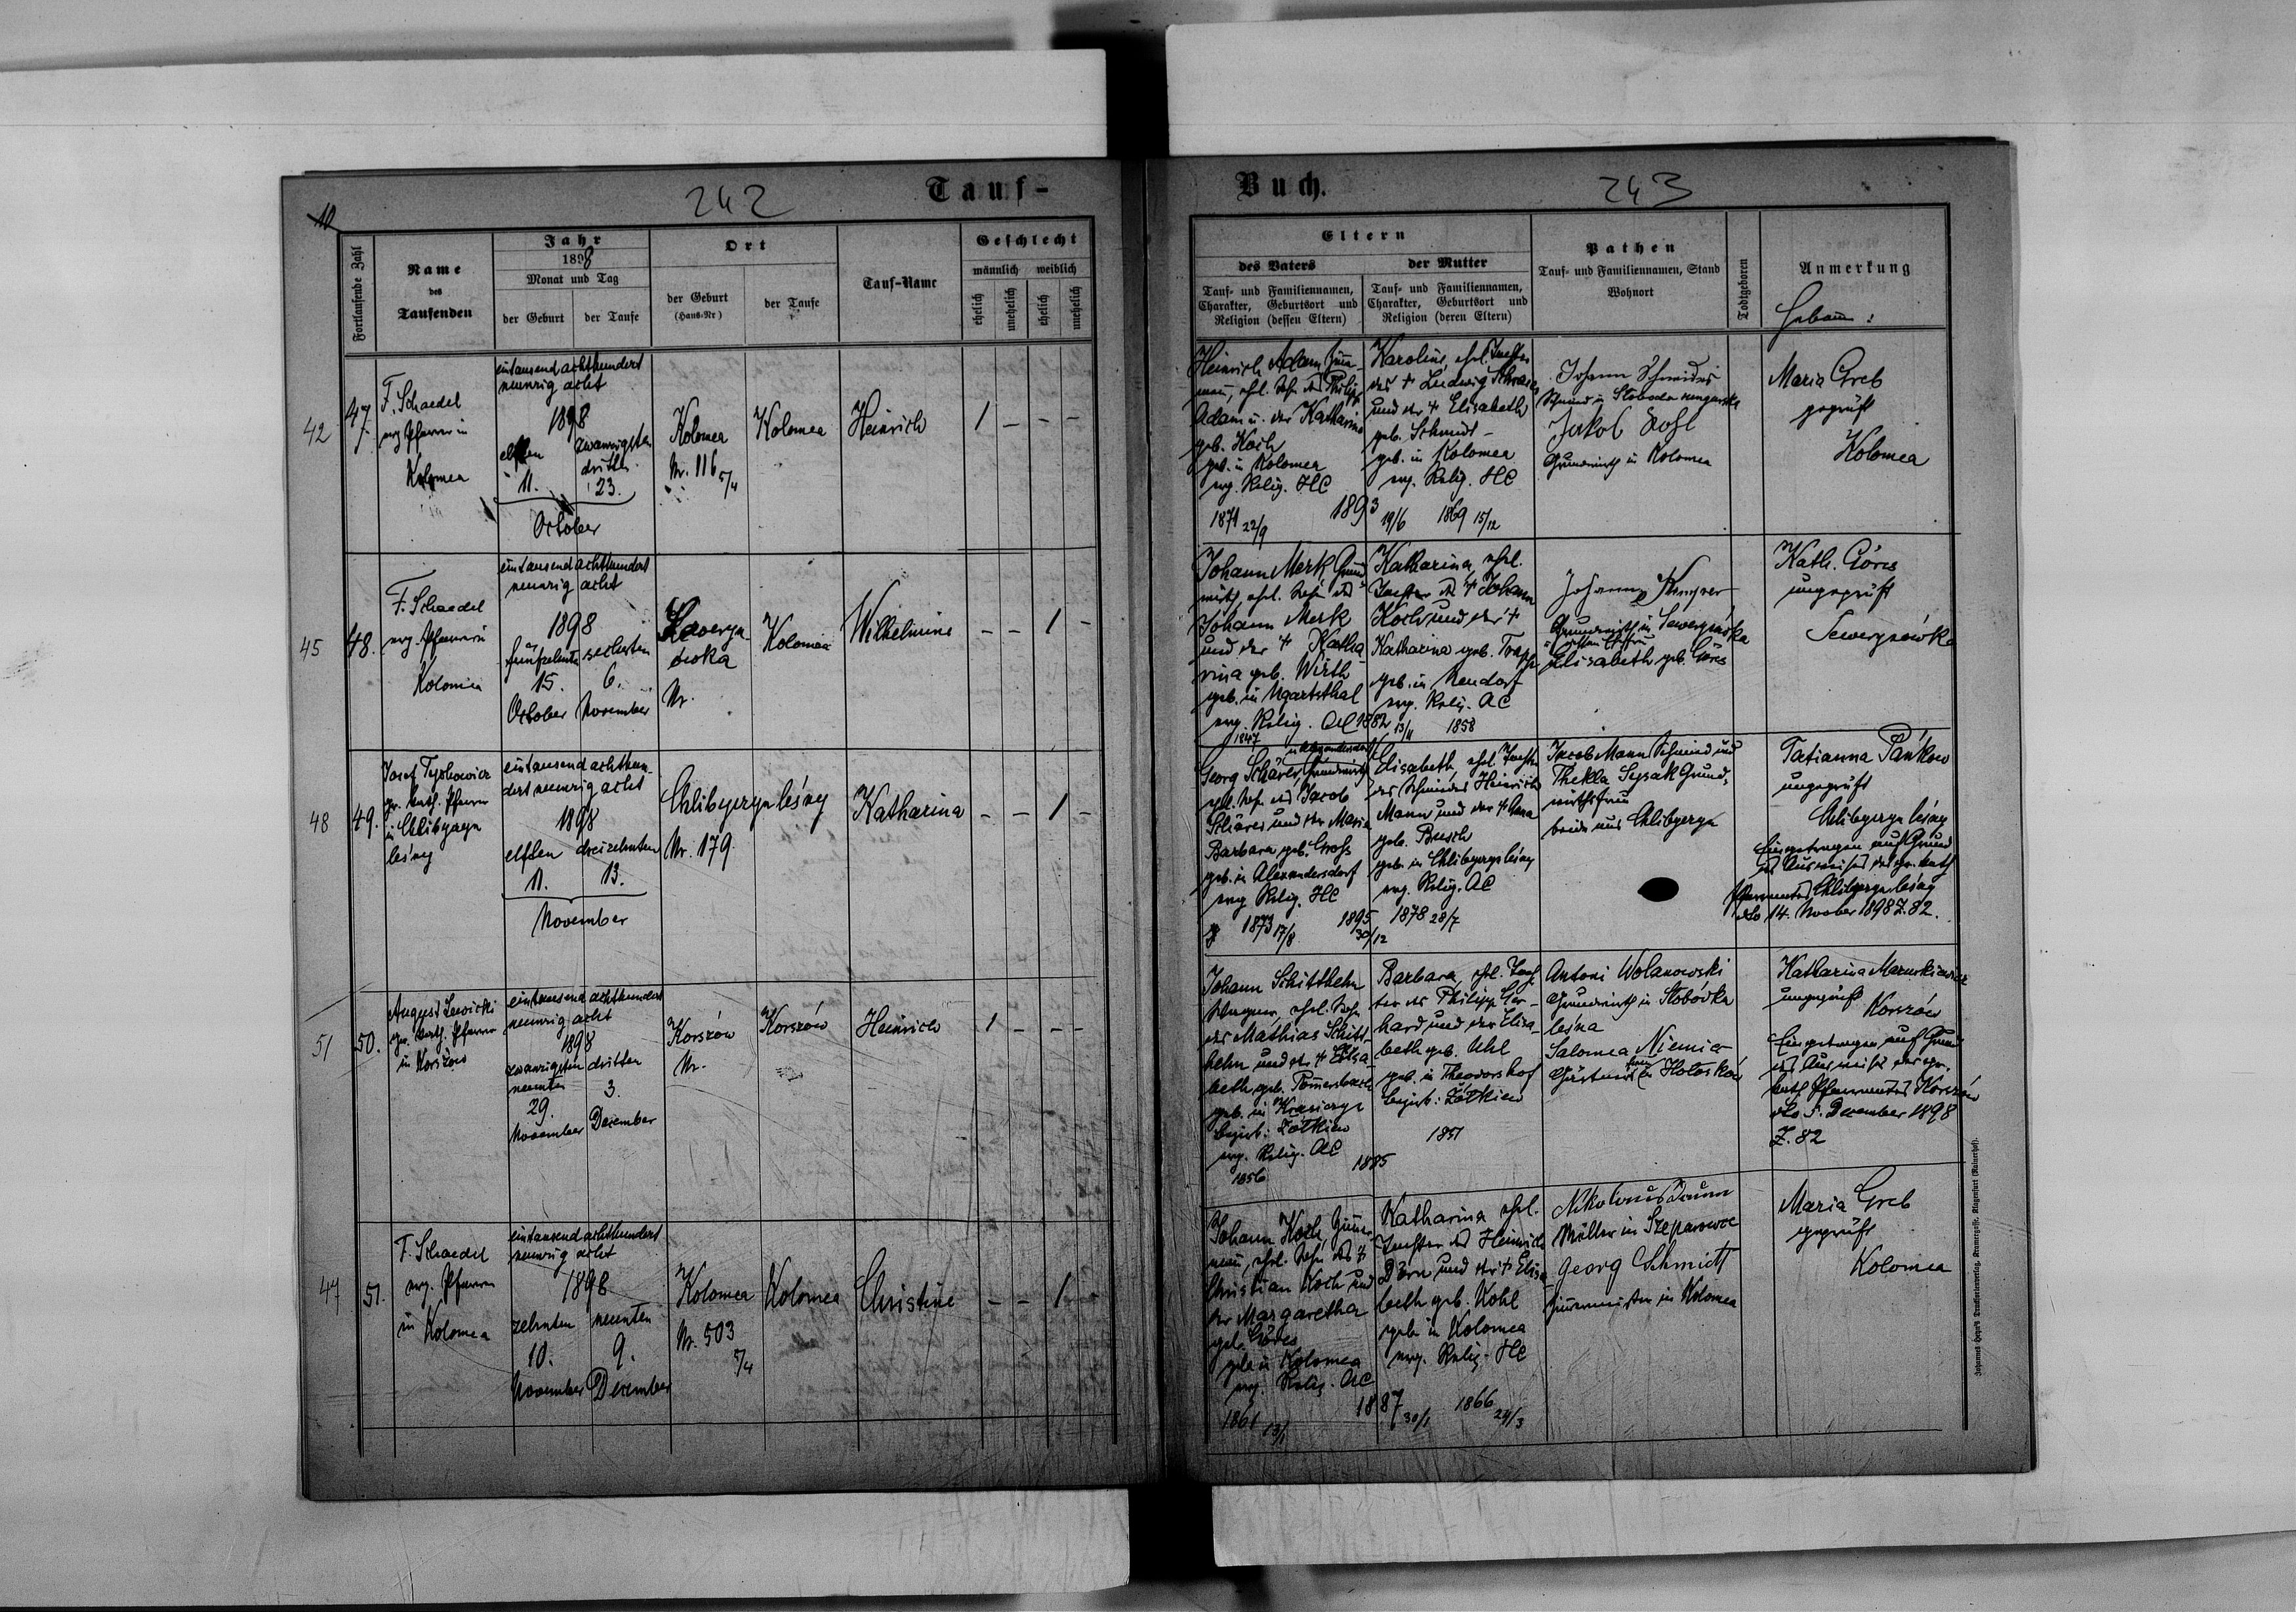 242
Tauf-
10
Fortlaufende Zahl
Name
des
Taufenden
Jahr
1898
Monat und Tag
der Geburt
der Taufe
Ort
der Geburt
(Haus-Nr)
der Taufe
Tauf-Name
Geschlecht
männlich
weiblich
ehelich
unehelich
ehelich
unehelich
42
47.
F. Schaedel
evg Pfarrer in
Kolomea
eintausend achthundert
neunzig acht
1898
elften
11.
zwanzigsten
dritten
23.
October
Kolomea
Nr. 116 5/4
Kolomea
Heinrich
1 – – –
45
48.
F. Schaedel
evg. Pfarrer in
Kolomea
eintausend achthundert
neunzig acht
1898
fünfzehnten
15.
October
sechsten
6.
November
Nr.
Kolomea
Wilhelmine
– – 1 –
48
49.
gr. kath. Pfarrer
in Chlibyczyn
leśny
eintausend achthun-
dert neunzig acht
1898
elften
11.
dreizehnten
13.
November
Chlibyczyn leśny
Nr. 179.
Katharina
– – 1 –
51
50.
August Lewicki
gr. kath. Pfarrer
in Korszów
eintausend achthundert
neunzig acht
1898
zwanzigsten
neunten
29.
November
dritten
3.
December
Korszów
Nr.
Korszów
Heinrich
1 – – –
47
51.
F. Schaedel
evg. Pfarrer
in Kolomea
eintausend achthundert
neunzig acht
1898
zehnten
10.
November
neunten
9.
December
Kolomea
Nr. 503
5/4
Kolomea
Christine
– – 1 –
Buch.
243
Eltern
des Vaters
der Mutter
Tauf- und Familiennamen,
Charakter, Geburtsort und
Religion (dessen Eltern)
Tauf- und Familiennamen,
Charakter, Geburtsort und
Religion (deren Eltern)
Pathen
Tauf- und Familiennamen, Stand
Wohnort
Todtgeboren
Anmerkung
Hebam:
Heinrich Adam, Zimm-
mann, ehl. Sohn des Philipp
Adam u. der Katharina
geb. Koch
geb. in Kolomea
evg. Relig. HC
1871 22/9
1893 19/6
Karoline, ehl. Tochter
des + Ludwig
und der + Elisabeth
geb. Schmidt
geb. in Kolomea
evg. Relig. HC
1869 15/12
Johann Schneider
Schmied in Sloboda rungurska
Jakob
Grundwirth in Kolomea
Maria Greb
geprüft
Kolomea
Johann Merk Grund-
wirth, ehel. Sohn des
Johann Merk
und der + Katha-
rina geb. Wirth
geb. in Ugartsthal
evg. Relig. AC
1847
1882 13/11
Katharina, ehl.
Tochter des + Johann
Koch und der +
Katharina geb.
geb. in Neudorf
evg. Relig. AC
1858
Johann Kemper
Grundwirth in Sewerynówka
Elisabeth geb. Göres
Kath. Göres
ungeprüft
Sewerynówka
Georg Schärer, Grundwirth
ehl. Sohn des Jacob
Schärer und der Maria
Barbara geb. Gross
geb. in Alexandersdorf
evg Relig. HC
1873 17/8
1895 30/12
Elisabeth, ehl. Tochter
des Schmiedes Heinrich
Mann und der + Anna
geb. Busch
geb. in Chlibyczyn leśny
evg. Relig. AC
1878 28/7
Jacob Mann Schmied und
Thekla Sysak Grund-
wirthsfrau
beide aus Chlibyczyn
Tatianna Pańków
ungeprüft
Chlibyczyn leśny
Eingetragen auf Grund
des Ausweises des gr. kath
Pfarramtes Chlibyczyn leśny
dto 14. November 1898 Z. 82.
Johann Schitthelm
Wagner, ehel. Sohn
des Mathias Schitt-
helm und der + Elisa-
beth geb. Pommersbach
geb. in
Bezirk: Żółkiew
evg. Relig. AC
1856
1885
Barbara, ehl. Toch-
ter des Philipp Ger-
hard und der Elisa-
beth geb. Uhl
geb. in Theodorshof
Bezirk: Żółkiew
1851
Antoni Wolanowski
Grundwirth in Slobódka
leśna
Salomea Niemic
Katharina
ungeprüft
Korszów
Eingetragen auf Grund
des Ausweises des gr.
kath Pfarramtes Korszów
dto 5. December 1898
Z. 82
Johann Koch, Zimmer-
mann, ehel. Sohn des +
Christian Koch und
der Margaretha
geb. Göres
geb. in Kolomea
evg. Relig. AC
1861 13/1
1887 30/1
Katharina ehl.
Tochter des Heinrich
Dörn und der + Elisa-
beth geb. Kohl
geb. in Kolomea
evg. Relig. HC
1866 24/3
Nikolaus Daum
Müller in Szeparowce
Georg Schmidt
Zimmermeister in Kolomea
Maria Greb
geprüft
Kolomea